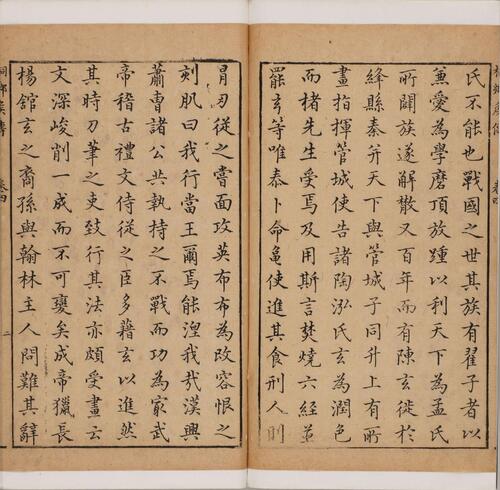 氏不能也戰國之世其族有翟子者以
兼愛為學磨頂放踵以利天下為孟氏
所闢族遂解散又百年而有陳玄徙於
絳縣秦并天下與管城子同升上有所
畫指揮管城使告諸陶泓氏玄為潤色
而楮先生受焉及用斯言焚燒六經並
罷玄等唯泰卜命龜使進其食刑人則
胷刃從之嘗面攻英布布為改容恨之
刻肌曰我行當王爾焉能涅我哉漢興
蕭曹諸公共執持之不戰而功為家武
帝稽古禮文侍從之臣多藉玄以進然
其時刀筆之吏致行其法亦頗受畫云
文深峻削一成而不可變矣成帝獵長
楊館玄之裔孫與翰林主人問難其辭
卷四
二